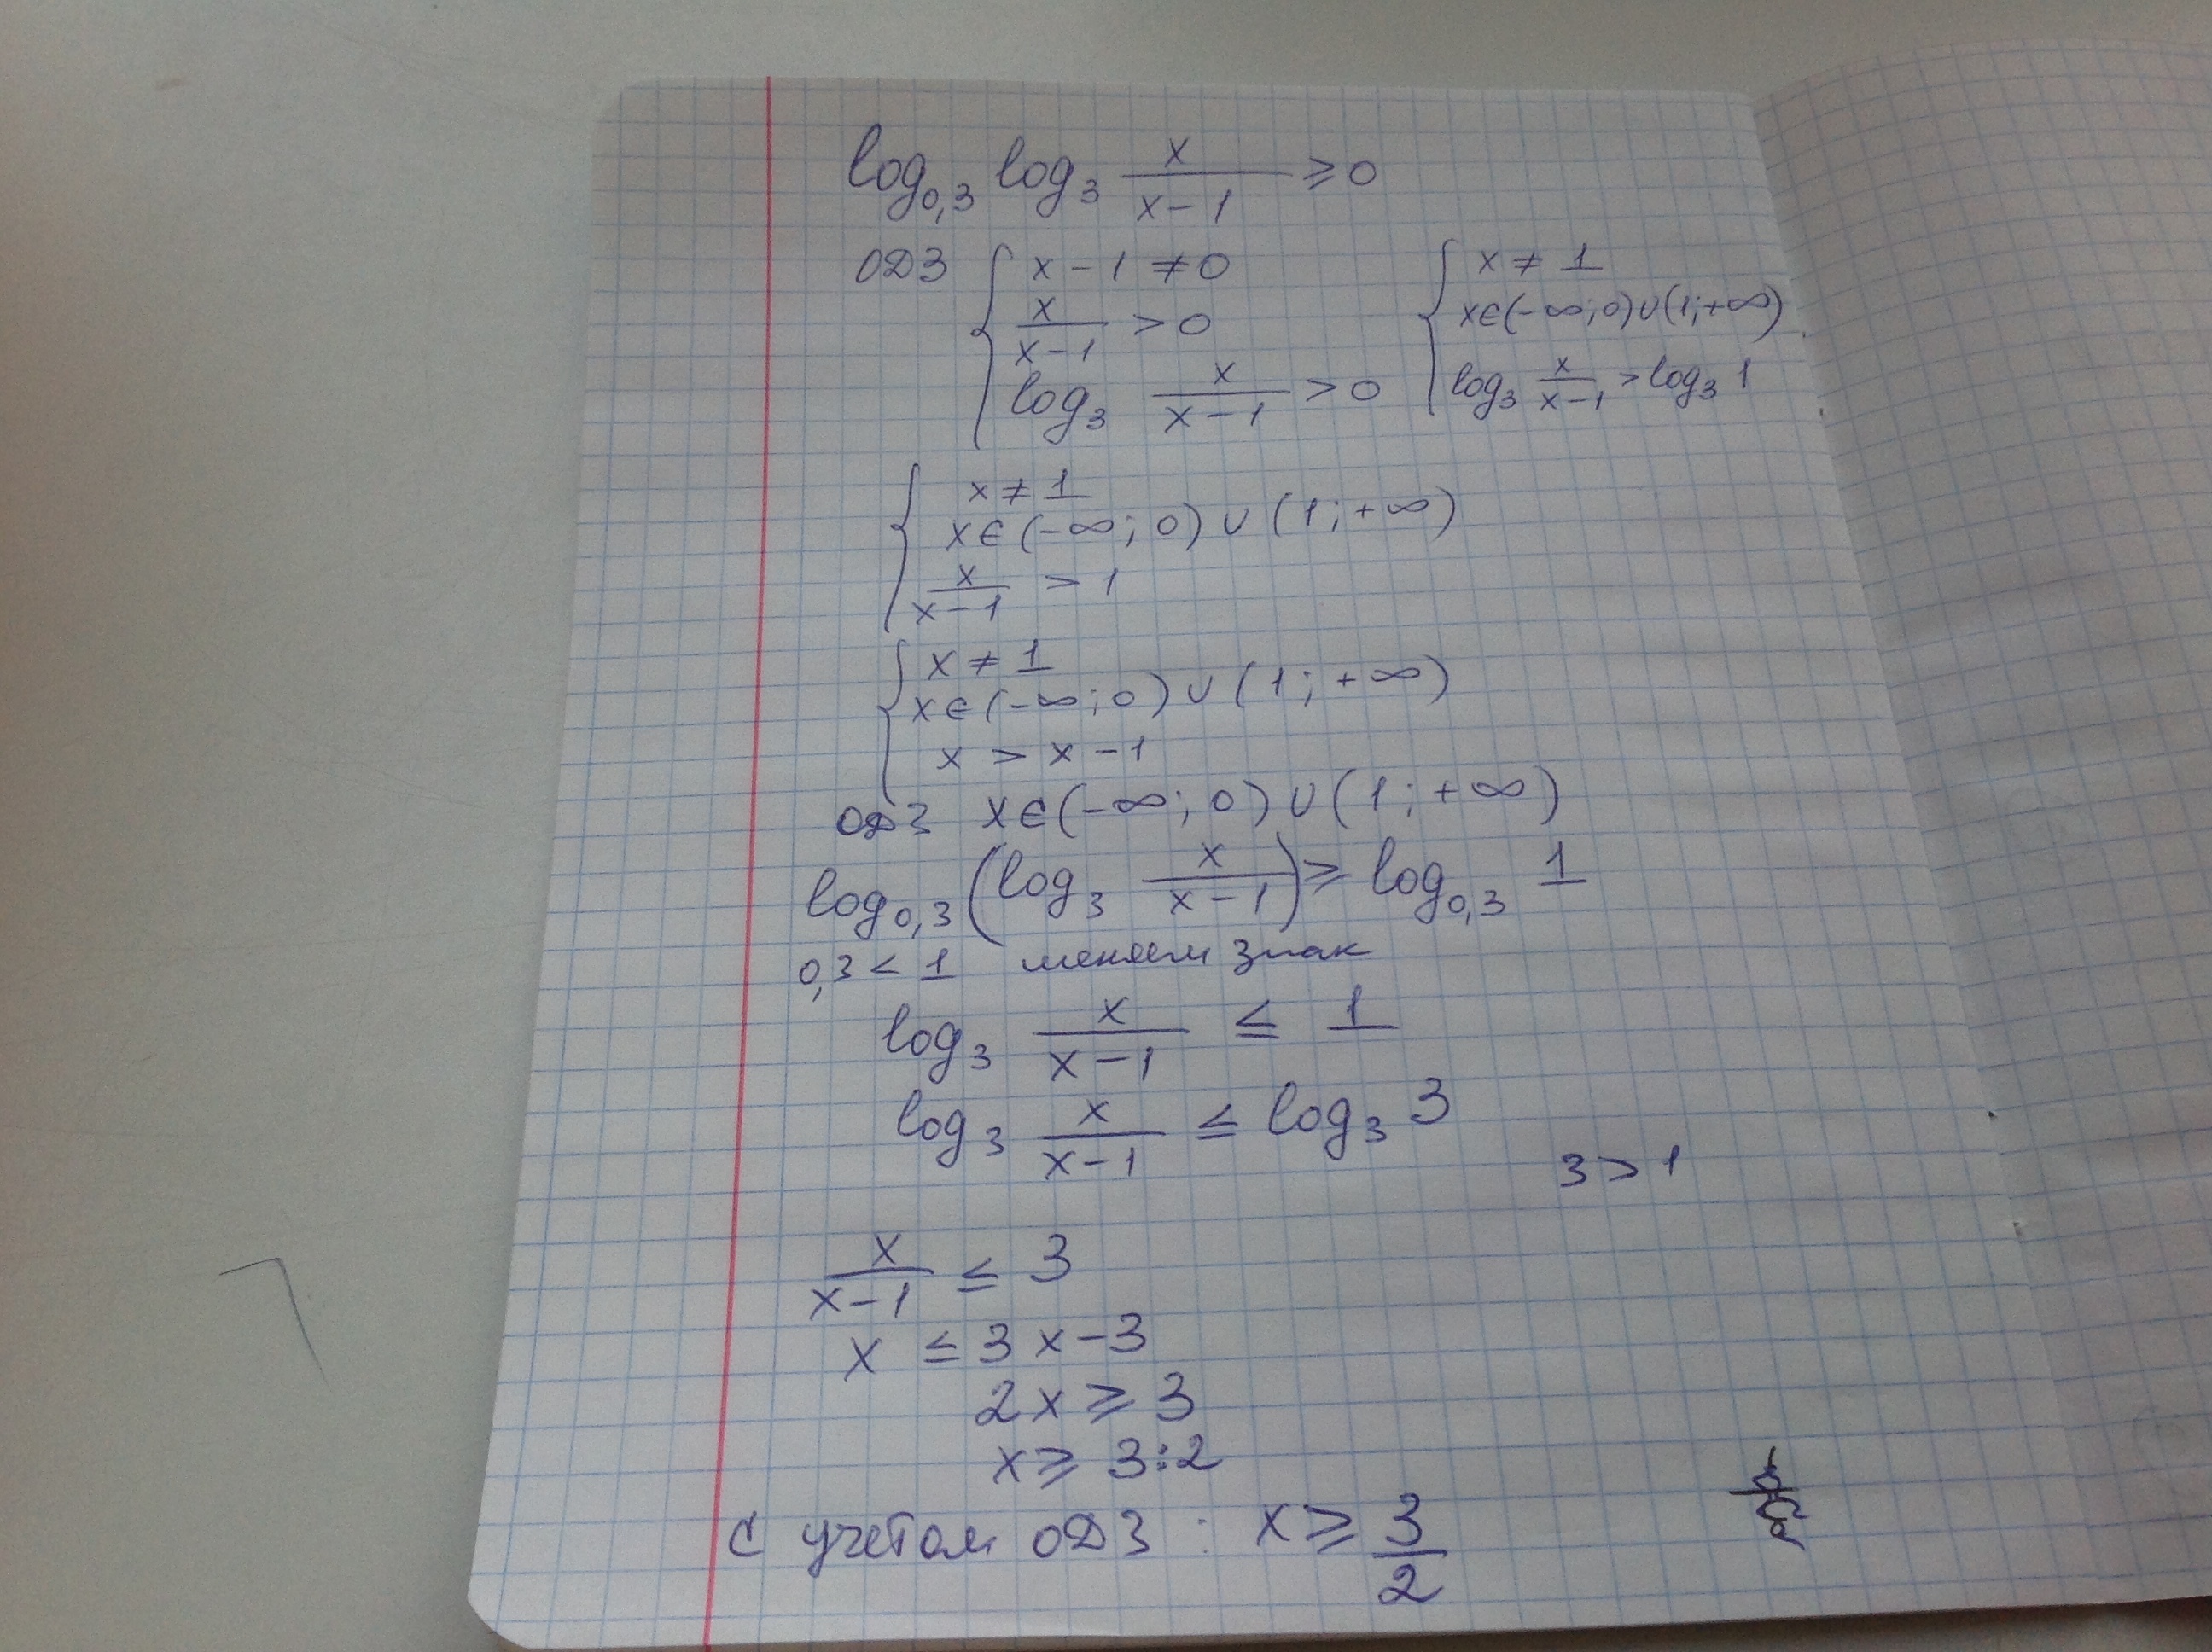 log₀,₃ log₃ x/(x-1) ≥ 0
ОДЗ { x-1 ≠ 0 { x ≠ 1
x/(x-1) > 0 x∈(-∞;0)∪(1;+∞)
log₃ x/(x-1) > 0 log₃ x/(x-1) > log₃ 1
{ x ≠ 1
x∈(-∞;0)∪(1;+∞)
x/(x-1) > 1
{ x ≠ 1
x∈(-∞;0)∪(1;+∞)
x > x-1
ОДЗ x∈(-∞;0)∪(1;+∞)
log₀,₃(log₃ x/(x-1)) ≥ log₀,₃ 1
0,3 < 1 меняем знак
log₃ x/(x-1) ≤ 1
log₃ x/(x-1) ≤ log₃ 3
3 > 1
x/(x-1) ≤ 3
x ≤ 3x-3
2x ≥ 3
x ≥ 3:2
С учетом ОДЗ: x ≥ 3/2